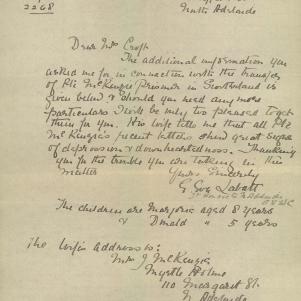 2268
North Adelaide
Dear Mrs Croft
The additional information you
asked me for in connection with the transfer
of Pte McKenzie Prisoner in Switzerland is
given below & should you need any more
particulars I will be only too pleased to get
them for you. His wife tells me that all Pte
McKenzie's recent letters show great signs
of depression & downheartedness. Thanking
you for the trouble you are taking in this
matter
Yours Sincerely
The children are Marjorie aged 8 years
& Donald " 5 years
The Wife's Address is:
Mrs J McKenzie
Myrtle Holme
110 Margaret St.
N. Adelaide